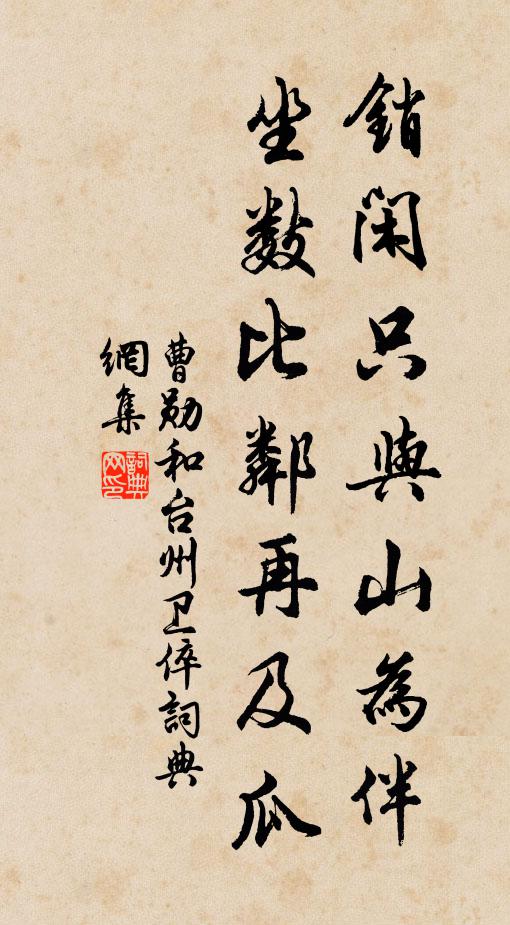 銷閑只與山為伴
坐数比鄰再及瓜
曹勛和台州卫倅詞典
網集
詞典
网印